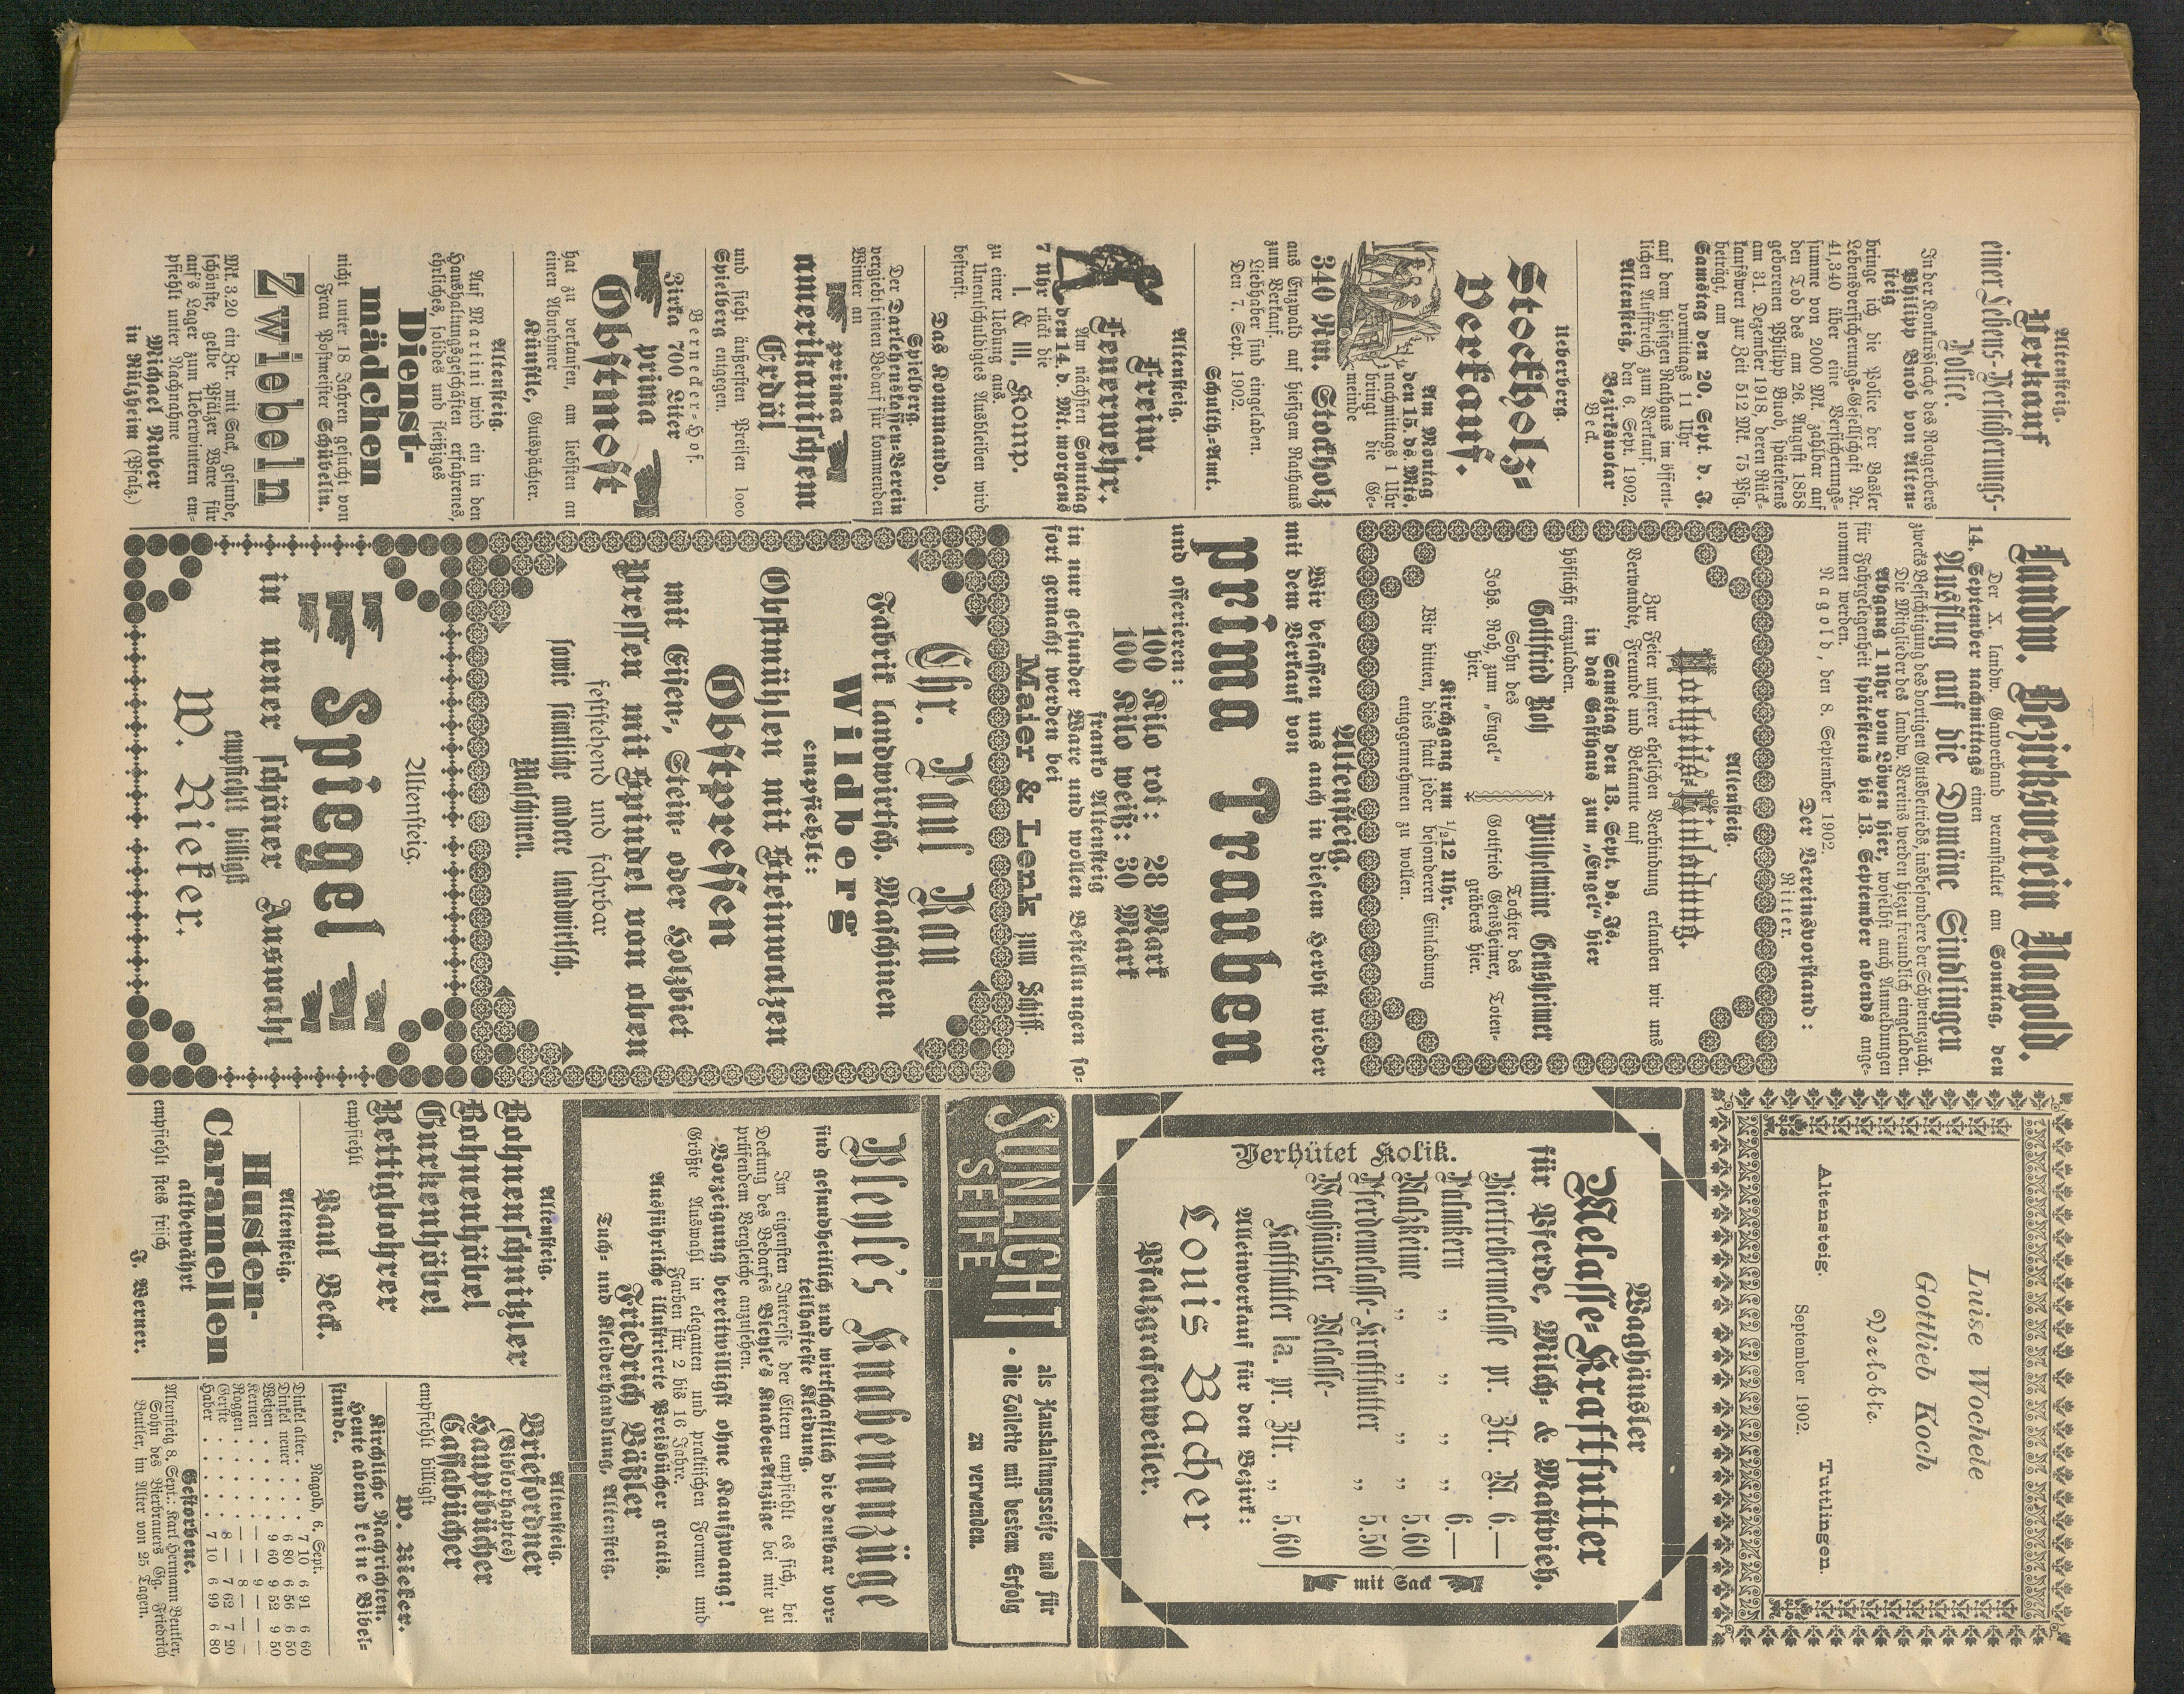 Altensteig.
Verkauf
einer Lebens-Versicherungs-
Police.
In der Konkurssache des Rotgerbers
Philipp Buob von Alten-
steig
bringe ich die Police der Basler
Lebensversicherungs-Gesellschaft Nr.
41,340 über eine Versicherungs-
summe von 2000 Mk. zahlbar auf
den Tod des am 26. August 1858
geborenen Philipp Buob, spätestens
am 31. Dezember 1918, deren Rück-
kaufswert zur Zeit 512 Mk. 75 Pfg.
beträgt, am
Samstag den 20. Sept. d. J.
vormittags 11 Uhr
auf dem hiesigen Rathaus im öffent-
lichen Aufstreich zum Verkauf.
Altensteig, den 6. Sept. 1902.
Bezirksnotar
Beck.
Ueberberg.
Stockholz-
Verkauf.
Am Montag
den 15. ds. Mts.
nachmittags 1 Uhr
bringt die Ge-
meinde
340 Rm. Stockholz
aus Enzwald auf hiesigem Rathaus
zum Verkauf.
Liebhaber sind eingeladen.
Den 7. Sept. 1902.
Schulth.-Amt.
Altensteig.
Freiw.
Feuerwehr.
Am nächsten Sonntag
den 14. d. Mt. morgens
7 Uhr rückt die
I. & III. Komp.
zu einer Uebung aus.
Unentschuldigtes Ausbleiben wird
bestraft.
Das Kommando.
Spielberg.
Der Darlehenskassen-Verein
vergiebt seinen Bedarf für kommenden
Winter an
prima
amerikanischem
Erdöl
und sieht äußersten Preisen loco
Spielberg entgegen.
Bernecker-Hof.
Zirka 700 Liter
prima
Obstmost
hat zu verkaufen, am liebsten an
einen Abnehmer
Künstle, Gutspächter.
Altensteig.
Auf Martini wird ein in den
Haushaltungsgeschäften erfahrenes,
ehrliches, solides und fleißiges
Dienst-
mädchen
nicht unter 18 Jahren gesucht von
Frau Postmeister Schübelin.
Zwiebeln
Mk. 3.20 ein Ztr. mit Sack, gesunde,
schönste, gelbe Pfälzer Ware für
aufs Lager zum Ueberwintern em-
pfiehlt unter Nachnahme
Michael Nuber
in Rülzheim (Pfalz.)
Landw. Bezirksverein Nagold.
Der X. landw. Gauverband veranstaltet am Sonntag, den
14. September nachmittags einen
Ausflug auf die Domäne Sindlingen
zwecks Besichtigung des dortigen Gutsbetriebs, insbesondere der Schweinezucht.
Die Mitglieder des landw. Vereins werden hiezu freundlich eingeladen.
Abgang 1 Uhr vom Löwen hier, woselbst auch Anmeldungen
für Fahrgelegenheit spätestens bis 13. September abends ange-
nommen werden.
Nagold, den 8. September 1902.
Der Vereinsvorstand:
Ritter.
Altensteig.
Hochzeits-Einladung.
Zur Feier unserer ehelichen Verbindung erlauben wir uns
Verwandte, Freunde und Bekannte auf
Samstag den 13. Sept. ds. Js.
in das Gasthaus zum „Engel“ hier
höflichst einzuladen.
Gottfried Roh
Sohn des
Johs. Roh, zum „Engel“
hier.
Wilhelmine Gensheimer
Tochter des
Gottfried Gensheimer, Toten-
gräbers hier.
Kirchgang um 1/212 Uhr.
Wir bitten, dies statt jeder besonderen Einladung
entgegennehmen zu wollen.
Altensteig.
Wir befassen uns auch in diesem Herbst wieder
mit dem Verkauf von
prima Trauben
und offerieren:
100 Kilo rot: 28 Mark
100 Kilo weiß: 30 Mark
franko Altensteig
in nur gesunder Ware und wollen Bestellungen so-
fort gemacht werden bei
Maier & Lenk zum Schiff.
Chr. Paul Rau
Fabrik landwirtsch. Maschinen
Wildberg
empfiehlt:
Obstmühlen mit Steinwalzen
Obstpressen
mit Eisen-, Stein- oder Holzbiet
Pressen mit Spindel von oben
feststehend und fahrbar
sowie sämtliche andere landwirtsch.
Maschinen.
Altensteig.
Spiegel
in neuer schöner Auswahl
empfiehlt billigst
W. Rieker.
Luise Wochele
Gottlieb Koch
Verlobte.
Altensteig. Tuttlingen.
September 1902.
Waghäusler
Melasse-Kraftfutter
für Pferde, Milch- & Mastvieh.
Verhütet Kolik.
Biertrebermelasse pr. Ztr. M. 6.—
Palmkern „ „ „ „ 6.—
Malzkeime „ „ „ „ 5.60
Pferdemelasse-Kraftfutter „ 5.50
Waghäusler Melasse-
Kraftfutter Ia. pr. Ztr. „ 5.60
mit Sack
Alleinverkauf für den Bezirk:
Louis Bacher
Pfalzgrafenweiler.
SUNLICHT
SEIFE
als Haushaltungsseife und für
die Toilette mit bestem Erfolg
zu verwenden.
Bleyle's Knabenanzüge
sind gesundheitlich und wirtschaftlich die denkbar vor-
teilhafteste Kleidung.
Im eigensten Interesse der Eltern empfiehlt es sich, bei
Deckung des Bedarfes Bleyle's Knaben-Anzüge bei mir zu
prüfendem Vergleiche anzusehen.
Vorzeigung bereitwilligst ohne Kaufzwang!
Größte Auswahl in eleganten und praktischen Formen und
Farben für 2 bis 16 Jahre.
Ausführliche illustrierte Preisbücher gratis.
Friedrich Bäßler
Tuch- und Kleiderhandlung, Altensteig.
Altensteig.
Bohnenschnitzler
Bohnenhöbel
Gurkenhöbel
Rettigbohrer
empfiehlt
Paul Beck.
Altensteig.
Husten-
Caramellen
altbewährt
empfiehlt stets frisch
J. Werner.
Altensteig.
Brieförner
(Biblorhaptes)
Hauptbücher
Cassabücher
empfiehlt billigst
W. Rieker.
Kirchliche Nachrichten.
Heute abend keine Bibel-
stunde.
Nagold, 6. Sept.
Dinkel alter . . . . 7 10 6 91 6 60
Dinkel neuer . . . . 6 80 6 56 6 50
Weizen . . . . . 9 60 9 52 9 50
Kernen . . . . . — — 9 — — —
Roggen . . . . . — — 8 — — —
Gerste . . . . . 8 — 7 62 7 20
Haber . . . . . 7 10 6 99 6 80
Gestorbene.
Altensteig 8. Sept.: Karl Hermann Beutler,
Sohn des Bierbrauers Gg. Friedrich
Beutler, im Alter von 25 Tagen.